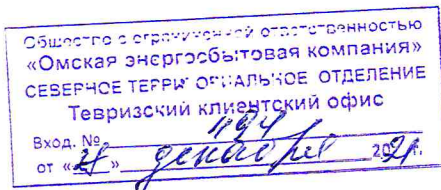 Общество с ограниченной ответственностью
«Омская энергосбытовая компания»
СЕВЕРНОЕ ТЕРРИТОРИАЛЬНОЕ ОТДЕЛЕНИЕ
Тевризский клиентский офис
Вход. №
от « » декабря 2021г.